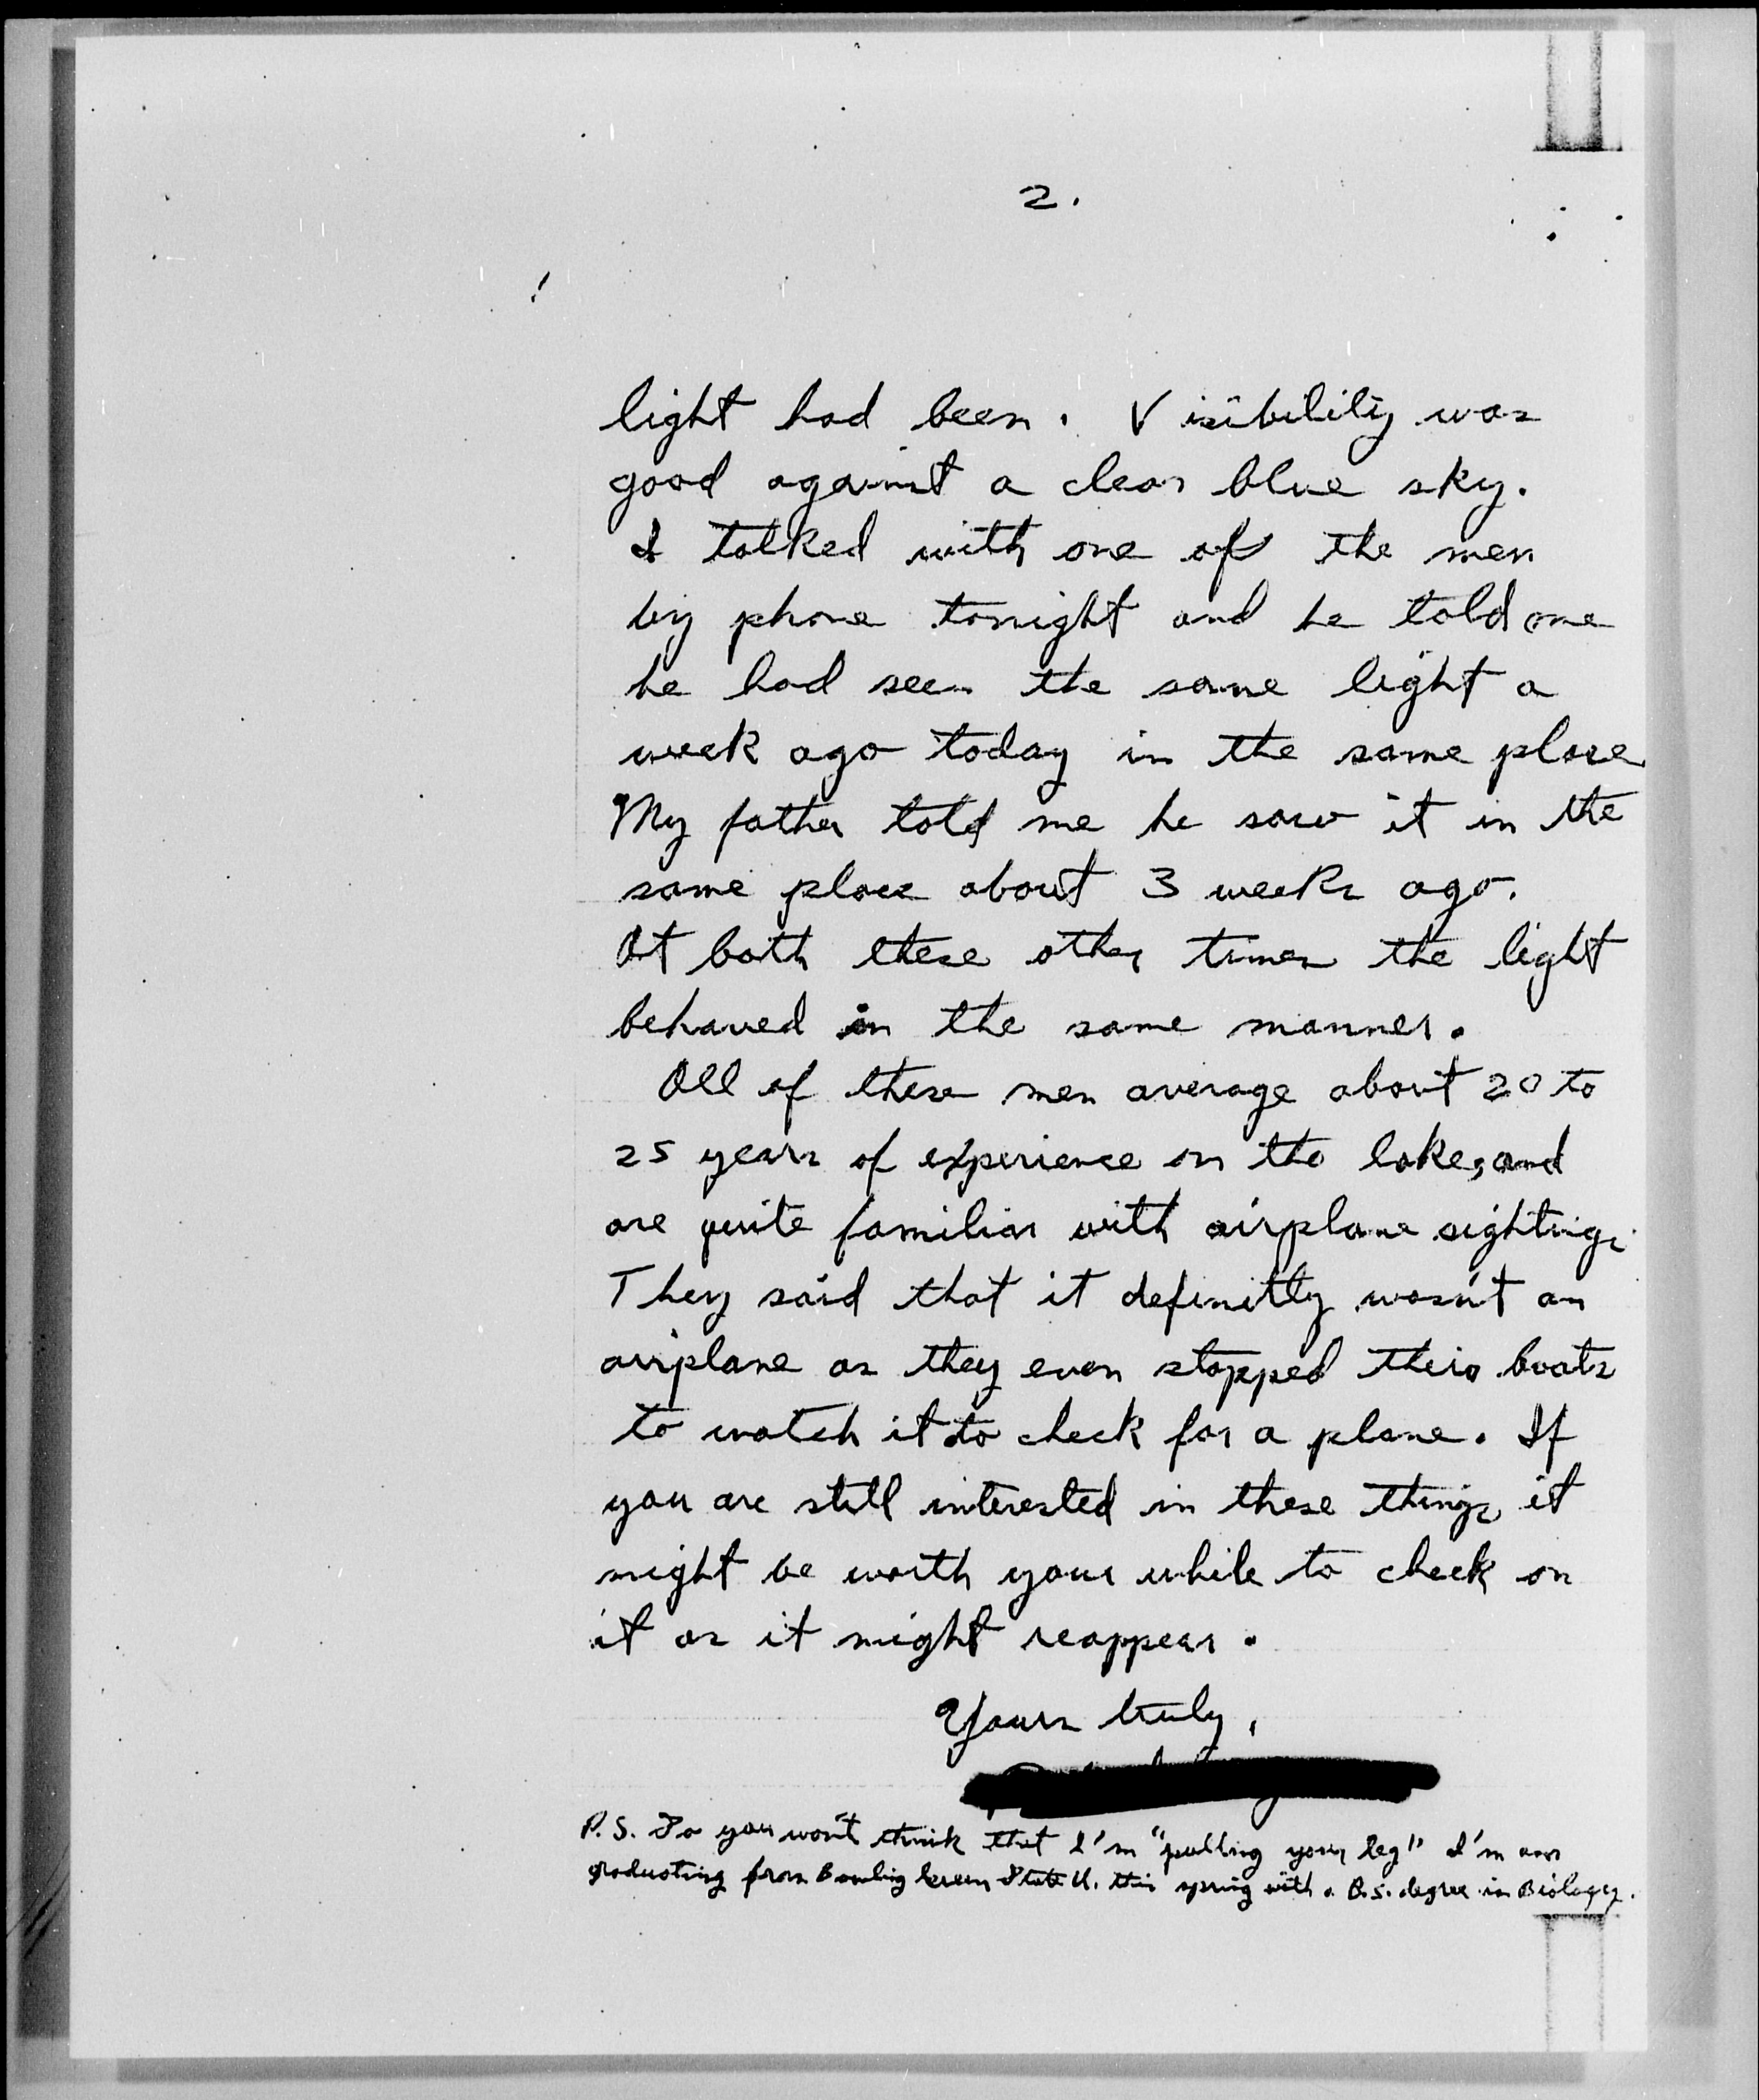 2.
light had been. Visibility was
good against a clear blue sky.
I talked with one of the men
by phone tonight and he told me
he had seen the same light a
week ago today in the same place
My father told me he saw it in the
same place about 3 weeks ago.
At both these other times the light
behaved in the same manner.
All of these men average about 20 to
25 years of experience on the lake, and
are quite familiar with airplane sightings.
They said that it definitly wasn't an
airplane as they even stopped their boats
to watch it to check for a plane. If
you are still interested in these things, it
might be worth your while to check on
it as it might reappear.
Yours truly,
P.S. So you won't think that I'm "pulling your leg" I'm
graduating from Bowling Green State U. this spring with a B.S. degree in Biology.